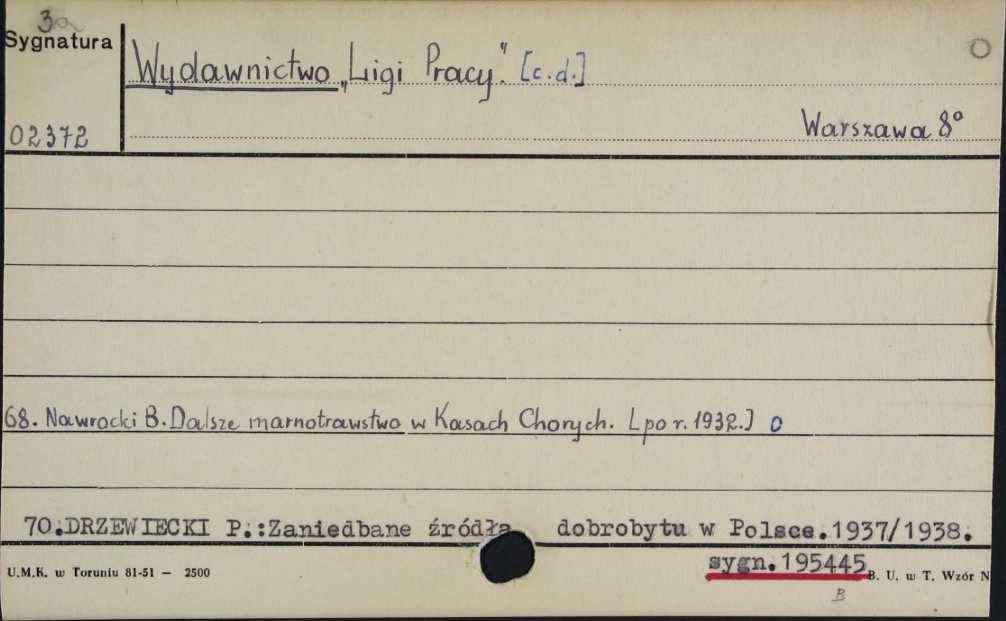 3a
Sygnatura
Wydawnictwo „Ligi Pracy." [c.d.]
02372
Warszawa 8°
68. Nawrocki B. Dalsze marnotrawstwo w Kasach Chorych. [po r. 1932.] 0
70.DRZEWIECKI P.:Zaniedbane źródła dobrobytu w Polsce.1937/1938.
sygn.195445
U.M.K. w Toruniu 81-51 — 2500
B. U. w T. Wzór N
B